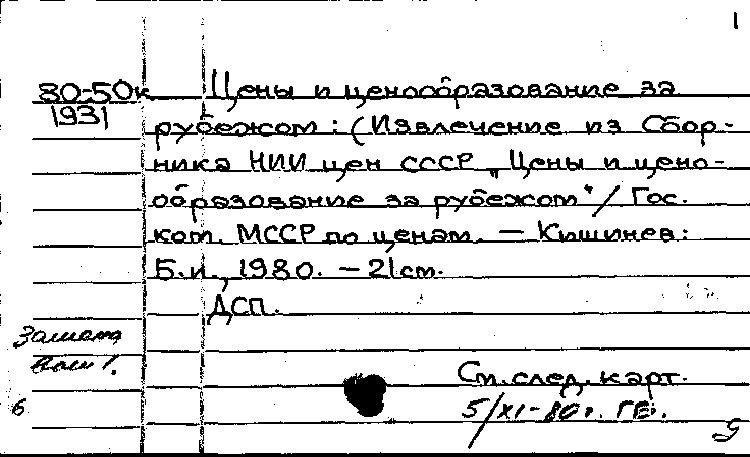 1
80-50к Цены и ценообразование за
1931
рубежом: (Извлечение из Сбор-
ника НИИ цен СССР „Цены и цено-
образование за рубежом"/ Гос.
ком. МССР по ценам. — Кишинев:
Б.и., 1980. — 21 см.
ДСП.
См. след. карт.
6
5/XI-80г. ГБ.